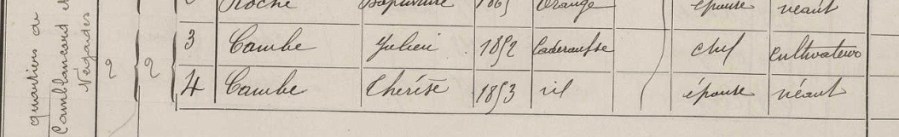 Roche 1865 Orange épouse néant
3 Cambe Julien 1852 Caderousse chef Cultivateur
4 Cambe Thérèse 1853 id épouse néant
quartiers de
Camblancard et
Négades
2 2